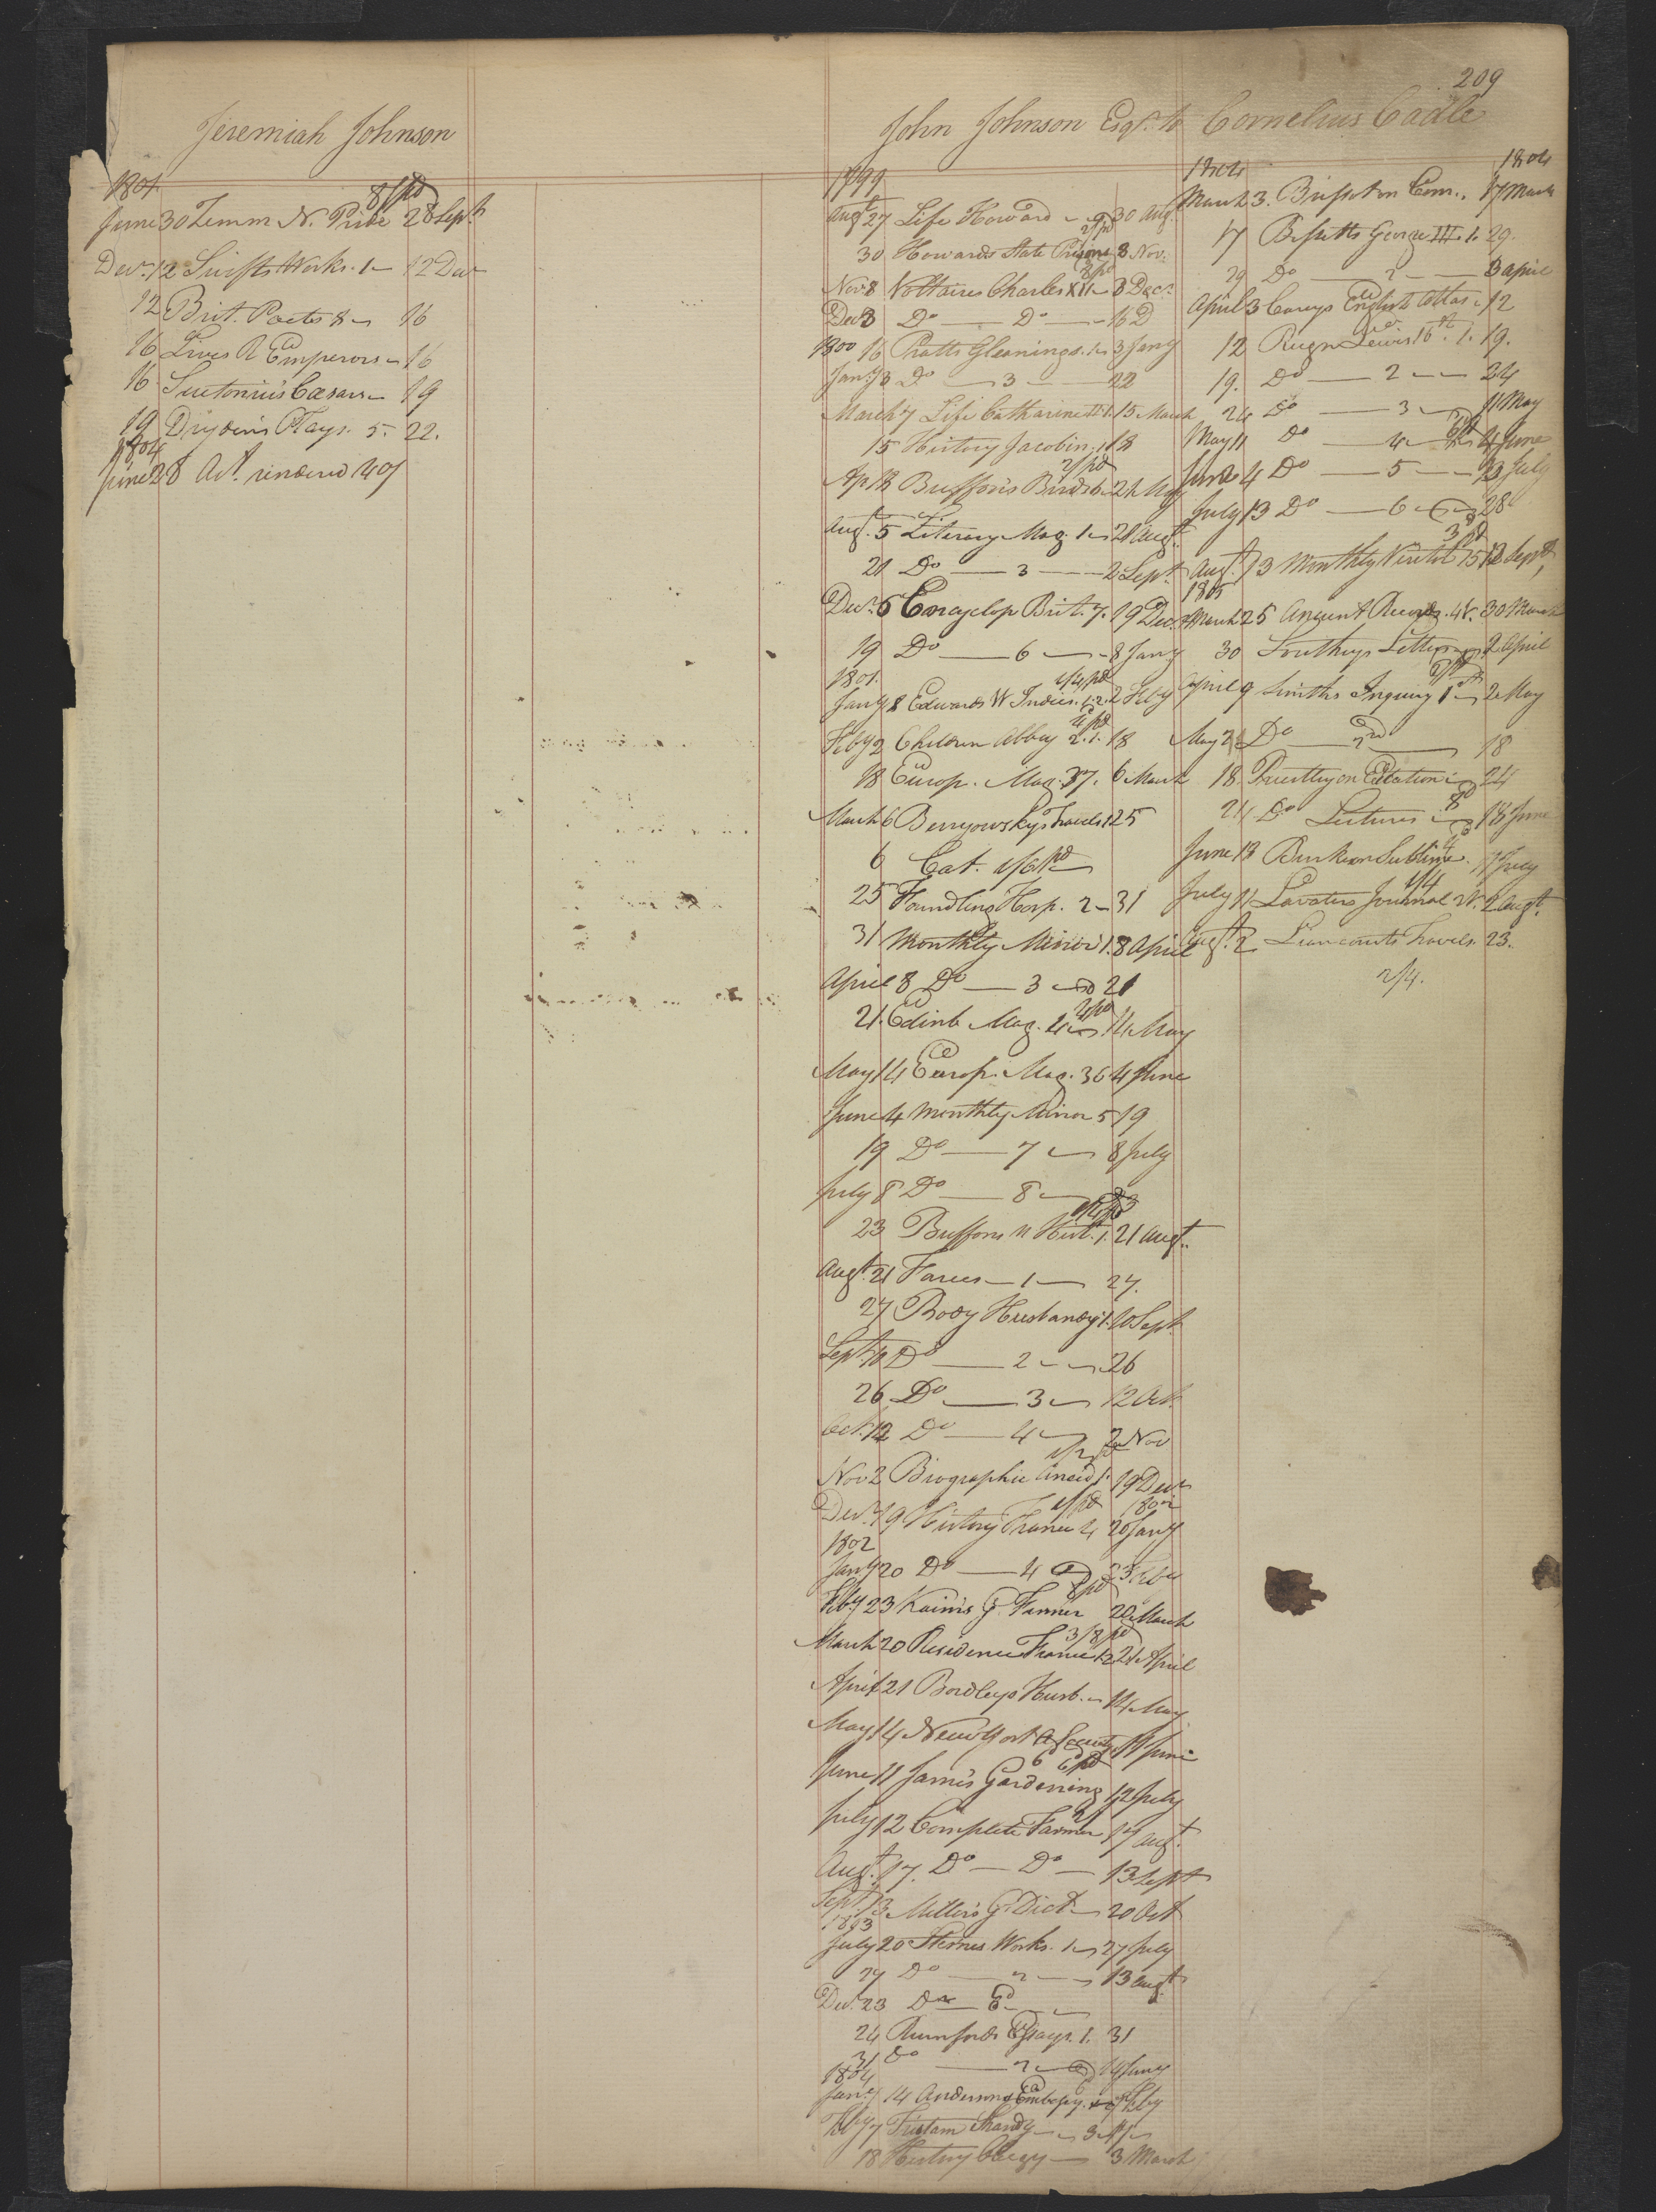 209
Jeremiah Johnson
1801
8/ pd
June 30 Zimm N. Pride 28 Sept.
Decr. 12 Swifts Works. 1 12 Decr
12 Brit. Poets 8 16
16 Lives R Emperors 16
16 Suetonius Cæsars 19
19 Drydens Plays. 5. 22.
1804
June 28 Act. rendered 40/
John Johnson Esqr. to Cornelius Cadle
1799
Augt 27 Life Howard 30 Augt
2/ pd
30 Howards State Prisons 8 Nov.
2/ pd
Nov. 8 Voltaires Charles XII 8 Decr.
Dec 8 Do Do 16 D
1800
16 Pratts Gleanings. 1 3 Jany
Jany 3 Do 3 22
March 7 Life Catharine II 1. 15 March
15 History Jacobin. 1 18
2/ pd
Ap 18 Buffon's Birds 6 21 May
Augt. 5 Literary Mag. 1 21 Augt.
21 Do 3 2 Sept.
Decr. 6 Encyclop Brit. 7. 19 Decr
19 Do 6 8 Jany
1801.
4/4 pd
Jany 8 Edwards W Indies. 1.2. 2 Feby
4/ pd
Feby 2 Children Abbey 2.1. 18
18 Europ. Mag. 37. 6 March
March 6 Benyowsky's Travels 1 25
6 Cat. 1/6 pd
25 Foundling Hosp. 2 31
31 Monthly Mirror 1. 8 April
April 8 Do 3 21
2/ pd
21. Edinb Mag. 4 14 May
May 14 Europ. Mag. 36 4 June
June 4 Monthly Mirror 5 19
19 Do 7 8 July
July 8 Do 8 23
23 Buffons N Hist. 1. 21 Augt.
Augt. 21 Farces 1 27.
27 Body Husbandy 1. 10 Sept
Sept. 10 Do 2 26
26 Do 3 12 Oct.
Oct. 12 Do 4 2 Nov
Nov 2 Biographic Anecd 1. 19 Decr
1/ pd 1802
Decr. 19 History France 4 20 Jany
1802
Jany 20 Do 4 23 Feby
8 pd
Feby 23 Kaims G. Farmer 20 March
3/8 pd
March 20 Residence France 1 2 21 April
April 21 Bordleys Husb. 14 May
May 14 New York A Society 11 June
6 pd
June 11 James Gardening 12 July
July 12 Complete Farmer 17 Augt.
Augt. 17. Do Do 13 Sept
Sept 13 Millers G Dict. 20 Oct
1803
July 20 Sternes Works. 1 27 July
27 Do 2 13 Augt
Decr. 23 Do
24 Rumfords Essays. 1. 31
31 Do 2 14 Jany
1804
Jany 14 Andersons Embassy. 7 Feby
Feby 7 Tristam Shandy
18 History 3 March
1804 1804
March 3. Com. 17 March
17 Bissetts George III. 1. 29.
29 Do 2 3 April
April 3 Careys English Atlas 12
12 Reign Lewis 16th. 1. 19.
19. Do 2 24
24 Do 3 11 May
May 11 Do 4 4 June
June 4 Do 5 13 July
July 13 Do 6 28
3 pd
Augt. 13 Monthly Visitor 15 12 Sept,
1805
March 25 Ancient Records. 4 V. 30 March
30 Southeys Letters 2 April
April 9 Smiths Inquiry 1st 2 May
May 2 Do 2nd 18
18. Priestley on Edcation 24
24 Do Lectures 18 June
June 18 Burke on Sublime. 11 July
1/4
July 11 Lavaters Journal 2 V. 2 Augt.
Augt. 2 Liancourts Travels. 23.
2/4.